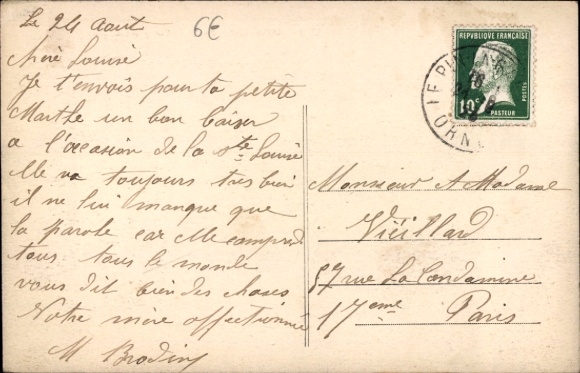 Le 24 Aout
6€
Chère Louise
Je t'envois pour ta petite
Marthe un bon baiser
a l'occasion de la Ste Louise
Elle va toujours tres bien
il ne lui manque que
la parole car elle comprend
tous tous le monde
vous dit bien des choses
Votre mère affectionnée
M Brodin
REPUBLIQUE FRANÇAISE
POSTES
10c
PASTEUR
LE PIN
ORNE
Monsieur & Madame
Vieillard
57 rue La Condamine
17eme Paris